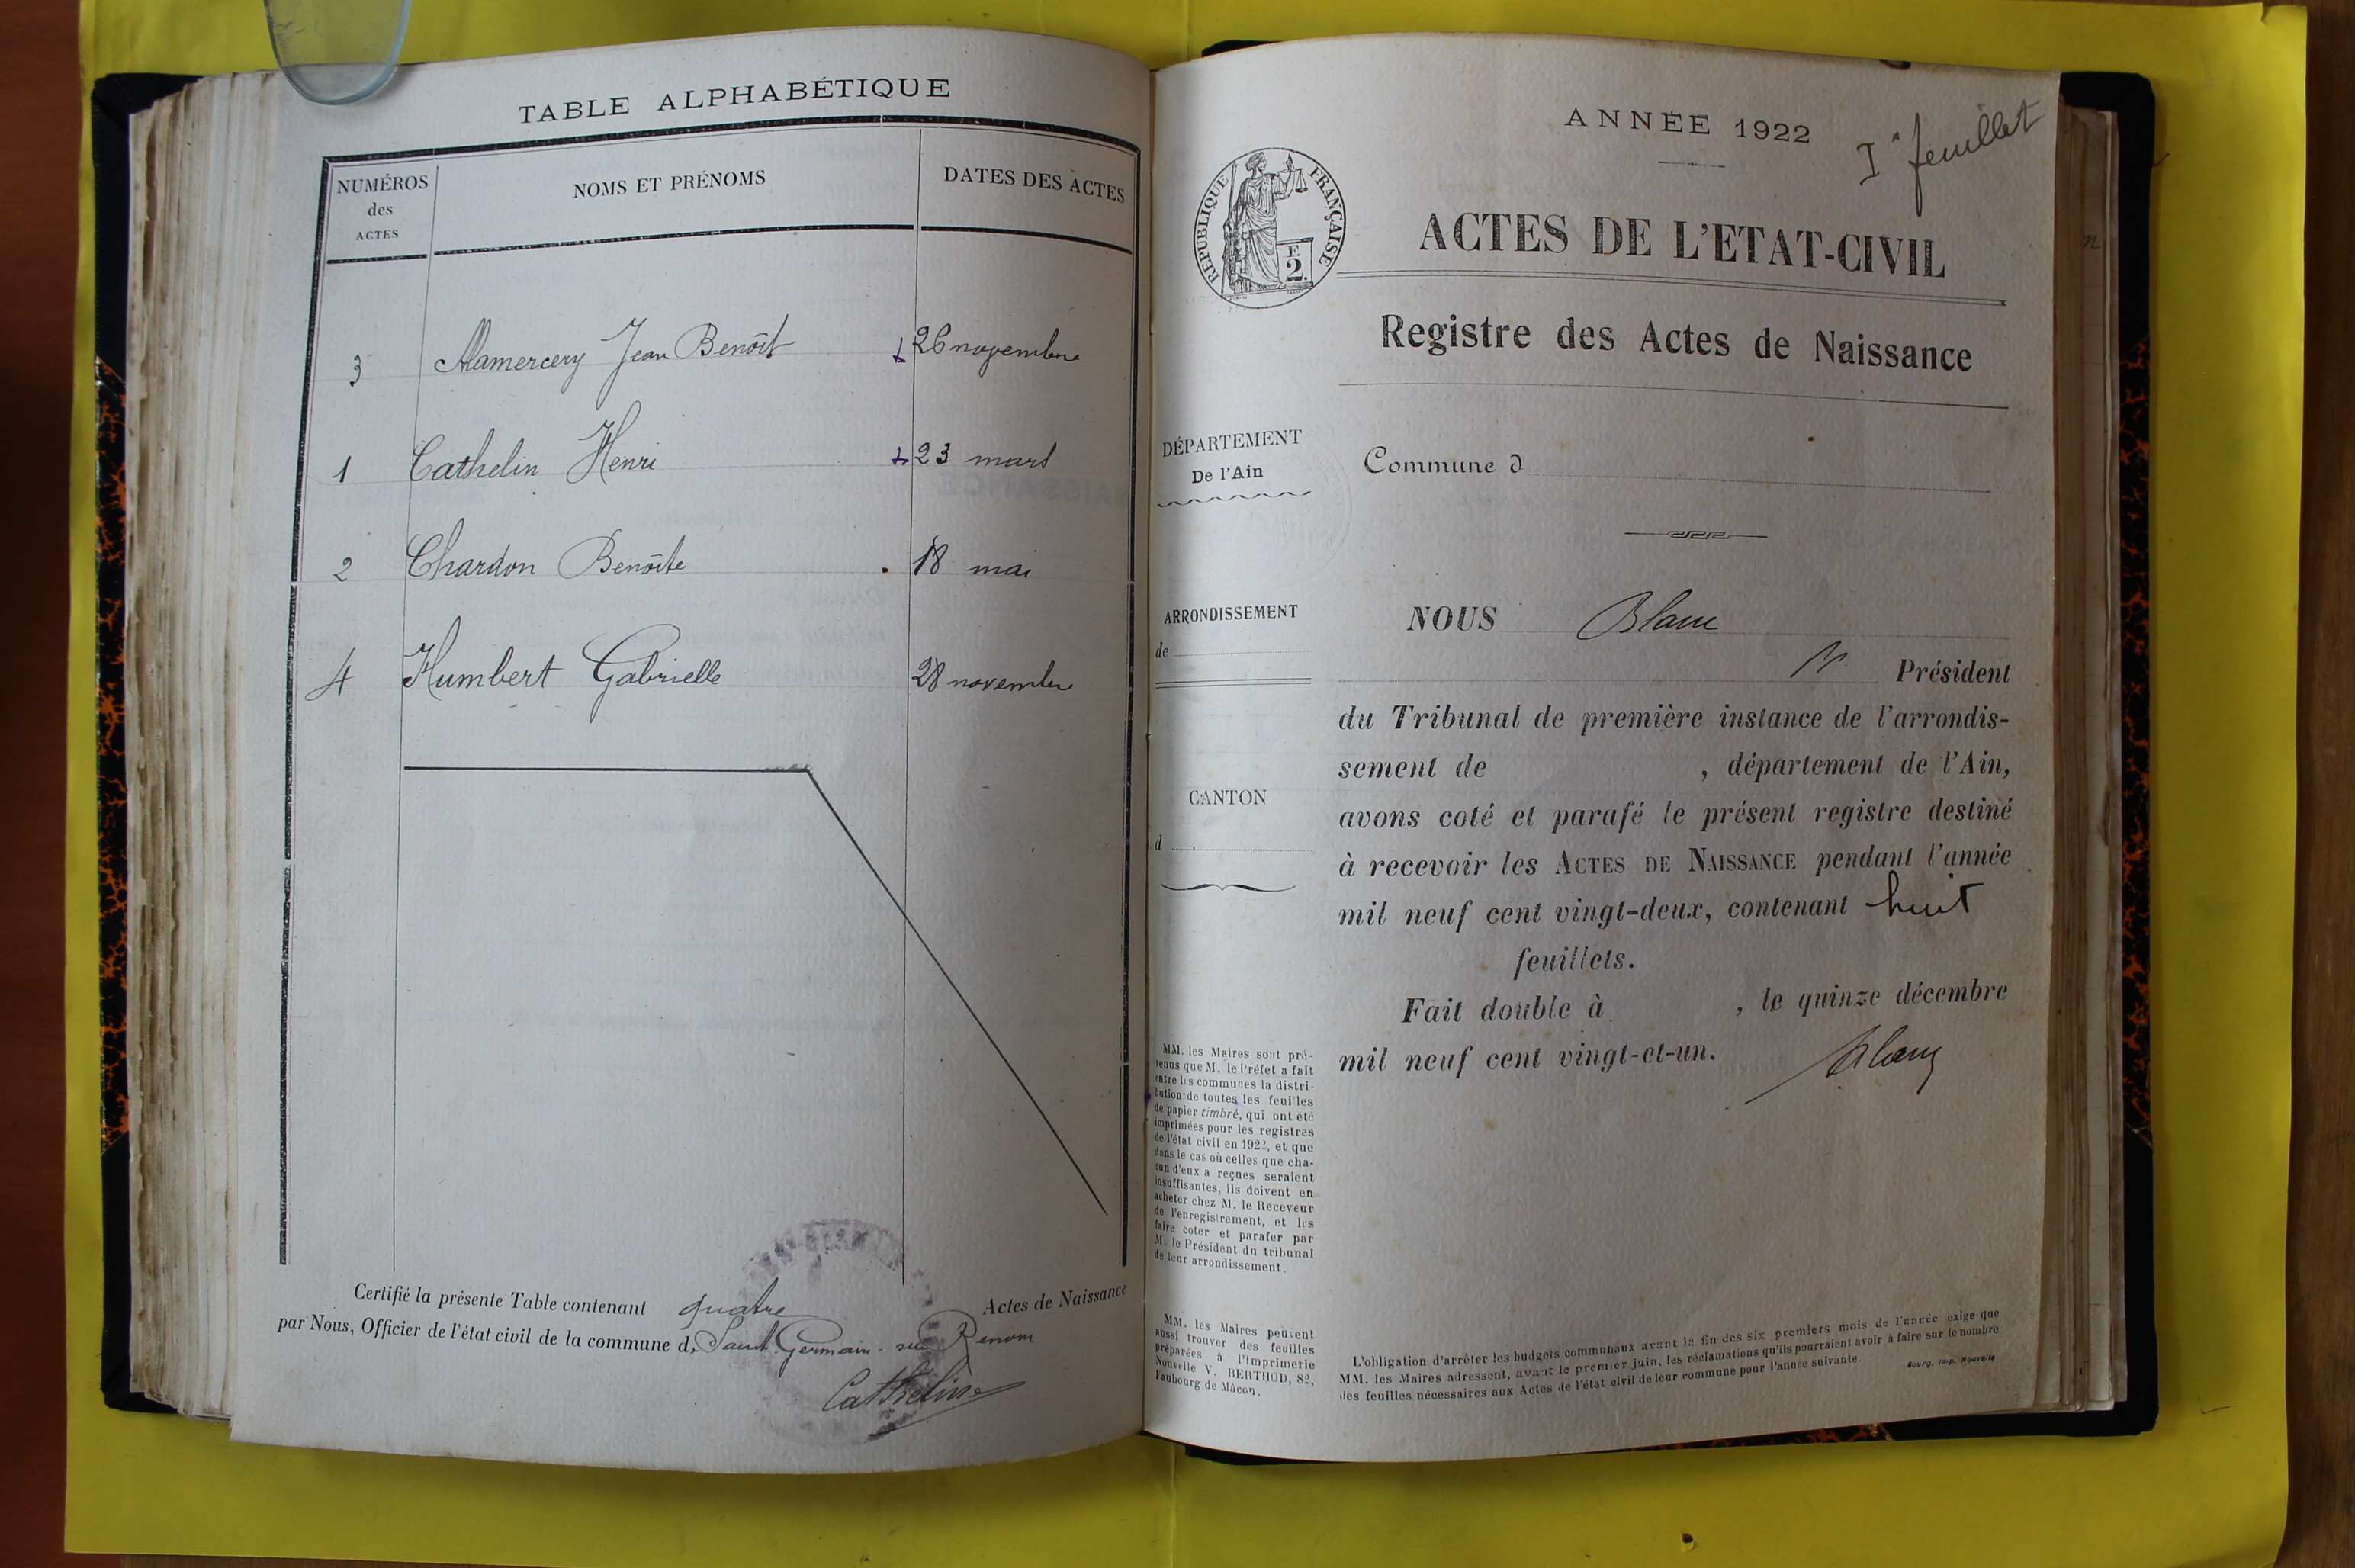 TABLE ALPHABÉTIQUE
NUMÉROS
des
ACTES
NOMS ET PRÉNOMS
DATES DES ACTES
3 Alamercery Jean Benoît 26 novembre
1 Cathelin Henri 23 mars
2 Chardon Benoîte 18 mai
4 Humbert Gabrielle 28 novembre
Certifié la présente Table contenant quatre Actes de Naissance
par Nous, Officier de l'état civil de la commune d Saint Germain-sur Renom
ANNÉE 1922
I° feuillet
RÉPUBLIQUE FRANÇAISE
F
2.
ACTES DE L'ETAT-CIVIL
Registre des Actes de Naissance
DÉPARTEMENT
De l'Ain
ARRONDISSEMENT
de
CANTON
d
MM. les Maires sont pré-
venus que M. le Préfet a fait
entre les communes la distri-
bution de toutes les feuilles
de papier timbré, qui ont été
imprimées pour les registres
de l'état civil en 1922, et que
dans le cas où celles que cha-
cun d'eux a reçues seraient
insuffisantes, ils doivent en
acheter chez M. le Receveur
de l'enregistrement, et les
faire coter et parafer par
M. le Président du tribunal
de leur arrondissement.
MM. les Maires peuvent
aussi trouver des feuilles
préparées à l'Imprimerie
Nouvelle V. BERTHOD, 82,
Faubourg de Mâcon.
Commune d
NOUS Blanc
Président
du Tribunal de première instance de l'arrondis-
sement de , département de l'Ain,
avons coté et parafé le présent registre destiné
à recevoir les ACTES DE NAISSANCE pendant l'année
mil neuf cent vingt-deux, contenant huit
feuillets.
Fait double à , le quinze décembre
mil neuf cent vingt-et-un.
Blanc
L'obligation d'arrêter les budgets communaux avant la fin des six premiers mois de l'année exige que
MM. les Maires adressent, avant le premier juin, les réclamations qu'ils pourraient avoir à faire sur le nombre
des feuilles nécessaires aux Actes de l'état civil de leur commune pour l'année suivante.
Bourg, Imp. Nouvelle